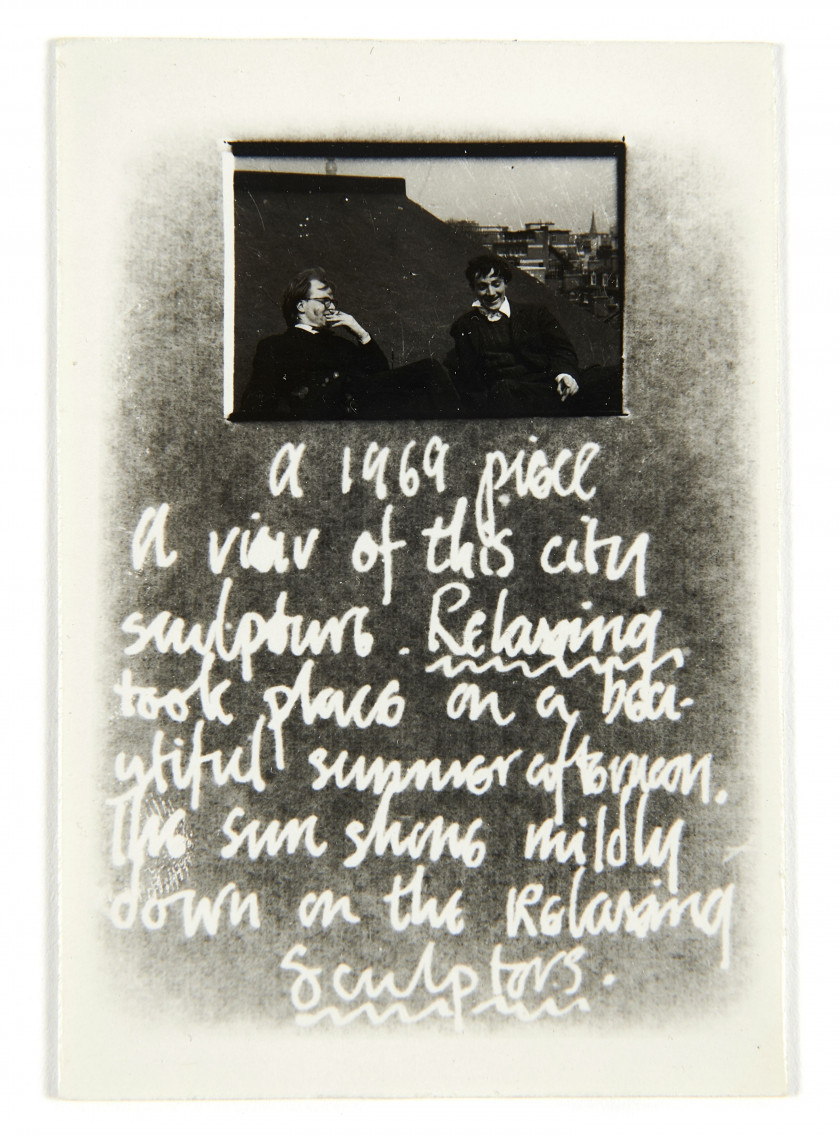 a 1969 piece
A view of this city
sculpture. Relaxing
took place on a bea-
utiful summer afternoon.
The sun shone mildly
down on the Relaxing
Sculptors.